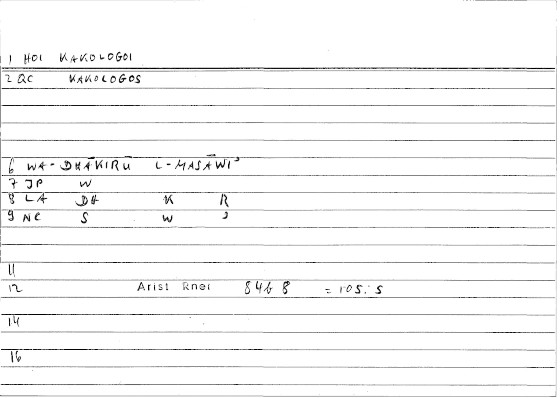 1 HOI KAKOLOGOI
2 QC KAKOLOGOS
6 WA-DHĀKIRŪ L-MASĀWIʾ
7 JP W
8 LA DH K R
9 NC S W ʾ
11
12 Arist Rhet 84b 8 = 105:5
14
16